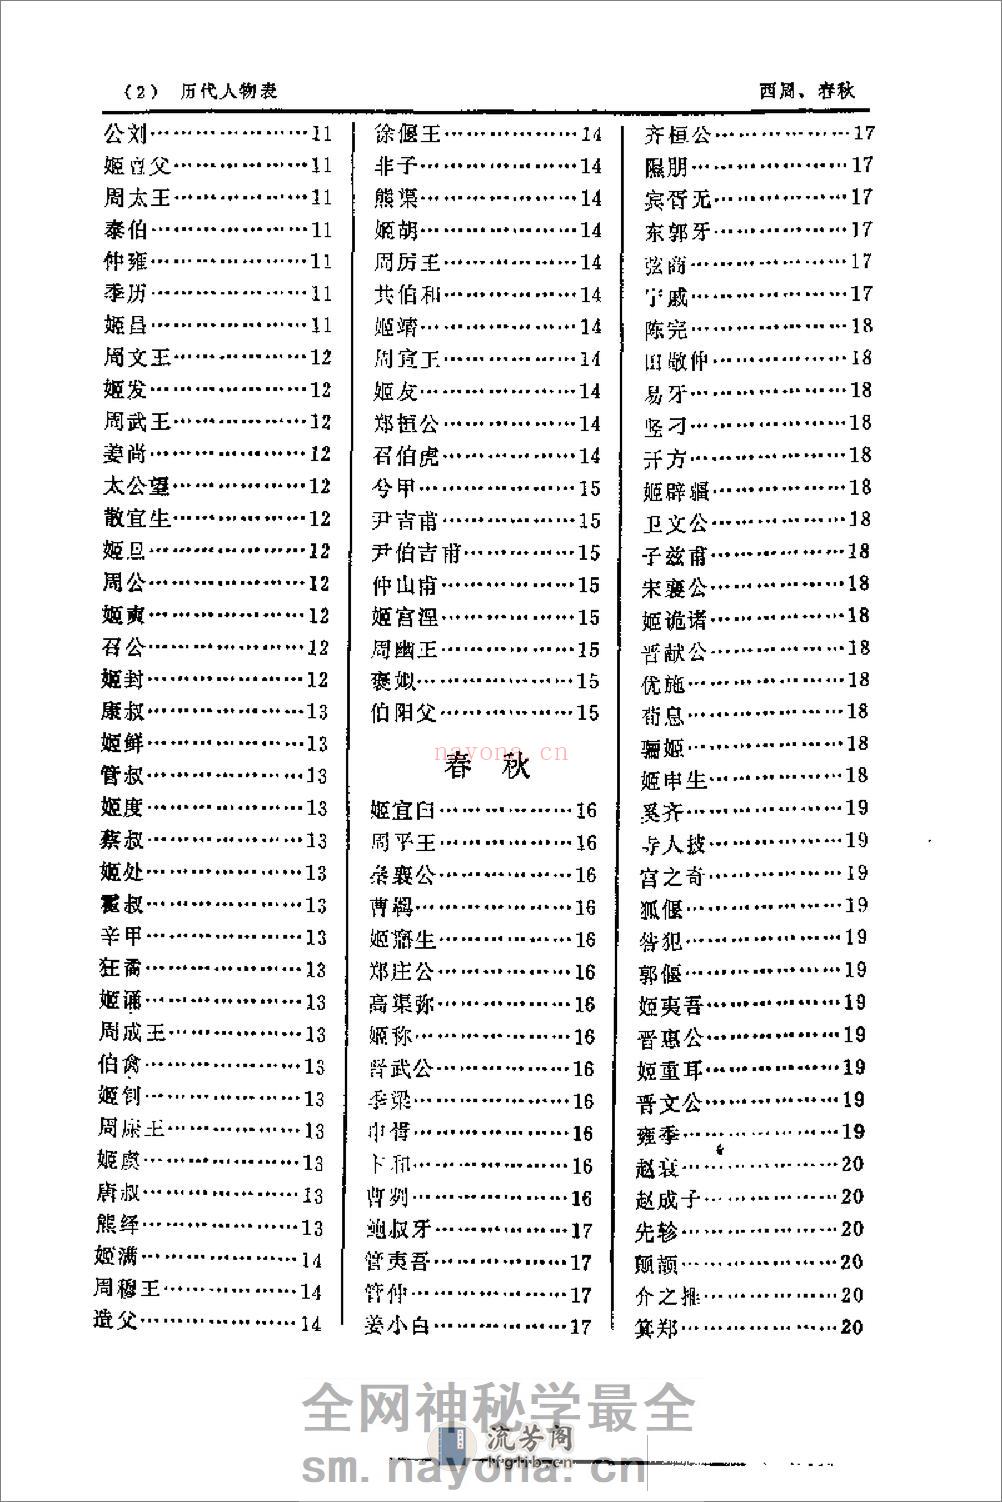 (2) 历代人物表
西周、春秋
公刘…………………11
姬亶父………………11
周太王………………11
泰伯…………………11
仲雍…………………11
季历…………………11
姬昌…………………11
周文王………………12
姬发…………………12
周武王………………12
姜尚…………………12
太公望………………12
散宜生………………12
姬旦…………………12
周公…………………12
姬奭…………………12
召公…………………12
姬封…………………12
康叔…………………13
姬鲜…………………13
管叔…………………13
姬度…………………13
蔡叔…………………13
姬处…………………13
霍叔…………………13
辛甲…………………13
狂矞…………………13
姬诵…………………13
周成王………………13
伯禽…………………13
姬钊…………………13
周康王………………13
姬虞…………………13
唐叔…………………13
熊绎…………………13
姬满…………………14
周穆王………………14
造父…………………14
徐偃王………………14
非子…………………14
熊渠…………………14
姬胡…………………14
周厉王………………14
共伯和………………14
姬靖…………………14
周宣王………………14
姬友…………………14
郑桓公………………14
召伯虎………………14
兮甲…………………15
尹吉甫………………15
尹伯吉甫……………15
仲山甫………………15
姬宫涅………………15
周幽王………………15
褒姒…………………15
伯阳父………………15
春 秋
姬宜臼………………16
周平王………………16
秦襄公………………16
曹羁…………………16
姬寤生………………16
郑庄公………………16
高渠弥………………16
姬称…………………16
晋武公………………16
季梁…………………16
申胥…………………16
卞和…………………16
曹刿…………………16
鲍叔牙………………17
管夷吾………………17
管仲…………………17
姜小白………………17
齐桓公………………17
隰朋…………………17
宾胥无………………17
东郭牙………………17
弦商…………………17
宁戚…………………17
陈完…………………18
田敬仲………………18
易牙…………………18
竖刁…………………18
开方…………………18
姬辟疆………………18
卫文公………………18
子兹甫………………18
宋襄公………………18
姬诡诸………………18
晋献公………………18
优施…………………18
荀息…………………18
骊姬…………………18
姬申生………………18
奚齐…………………19
寺人披………………19
宫之奇………………19
狐偃…………………19
咎犯…………………19
郭偃…………………19
姬夷吾………………19
晋惠公………………19
姬重耳………………19
晋文公………………19
雍季…………………19
赵衰…………………20
赵成子………………20
先轸…………………20
颠颉…………………20
介之推………………20
箕郑…………………20
nayona.cn
全网神秘学最全
流芳阁
lfglib.cn
sm.nayona.cn